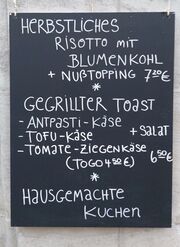 HERBSTLICHES
RISOTTO MIT
BLUMENKOHL
+ NUßTOPPING 7,20€
*
GEGRILLTER TOAST
- ANTPASTI-KÄSE
- TOFU-KÄSE + SALAT
- TOMATE-ZIEGENKÄSE 6,50€
(TOGO 4,50€)
*
HAUSGEMACHTE
KUCHEN